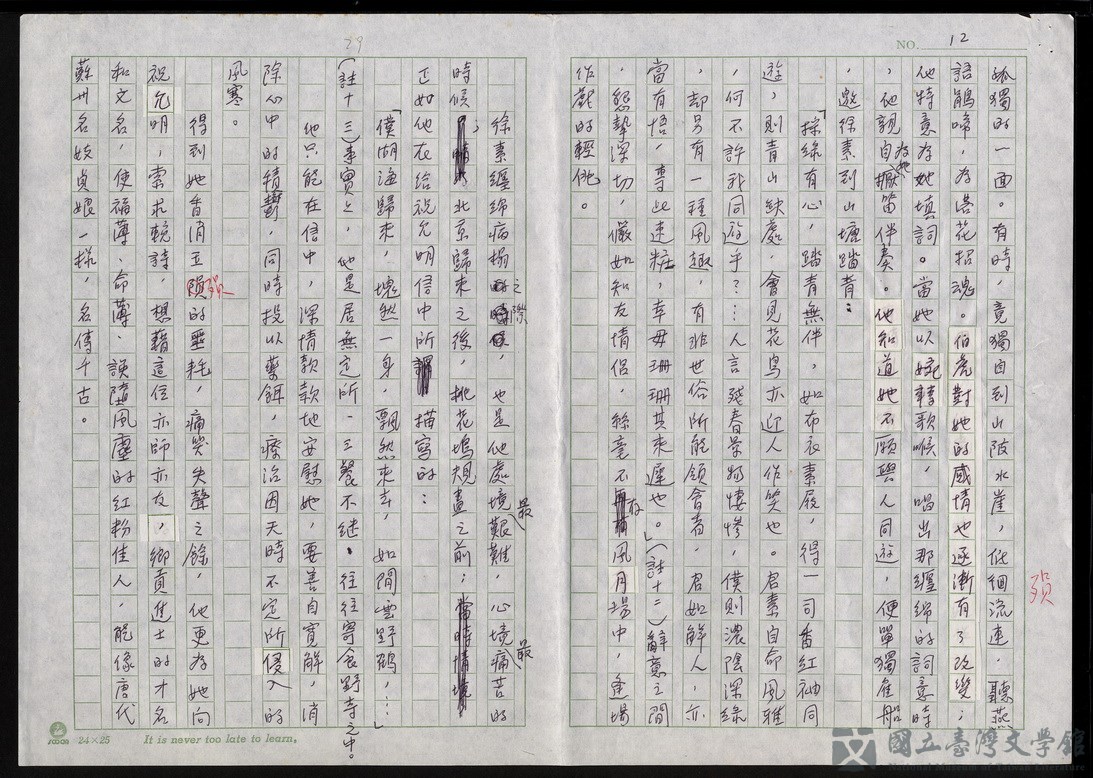 NO. 12
孤獨的一面。有時，竟獨自到山陂水崖，低細流連，聽燕
語鵑啼，為落花招魂。伯虎對她的感情也逐漸有了改變；
他特意為她填詞。當她以婉轉歌喉，唱出那纏綿的詞意時
，他親自為她擫笛伴奏。他知道她不願與人同遊，便單獨雇船
，邀徐素到山塘踏青：
「採綠有心，踏青無伴，如布衣素屐，得一司香紅袖同
遊，則青山缺處，會見花鳥亦迎人作笑也。君素自命風雅
，何不許我同遊乎？…人言殘春景物悽慘，僕則濃陰深綠
，却另有一種風趣，有非世俗所能領會者，君如解人，亦
當有悟，專此速粧，幸毋珊珊其來遲也。」（註十二）辭意之間
，懇摯深切，儼如知友情侶，絲毫不存風月場中，逢場
作戲的輕佻。
29
徐素纏綿病榻之際，也是他處境最艱難，心境最痛苦的
時候；北京歸來之後，桃花塢規畫之前；
正如他在給祝允明信中所描寫的：
「僕湖海歸來，塊然一身，飄然來去，如閒雲野鶴，…」
（註十三）事實上，他是居無定所，三餐不继，往往寄食野寺之中。
他只能在信中，深情款款地安慰她，要善自寬解，消
除心中的積鬱，同時投以藥餌，療治因天時不定所侵入的
風寒。
得到她香消玉殞的噩耗，痛哭失聲之餘，他更為她向
祝允明，索求輓詩，想藉這位亦師亦友，鄉貢進士的才名
和文名，使福薄、命薄、誤墮風塵的紅粉佳人，能像唐代
蘇州名妓貞娘一樣，名傳千古。
殞
殞
24×25 It is never too late to learn.
國立臺灣文學館
National Museum of Taiwan Literature